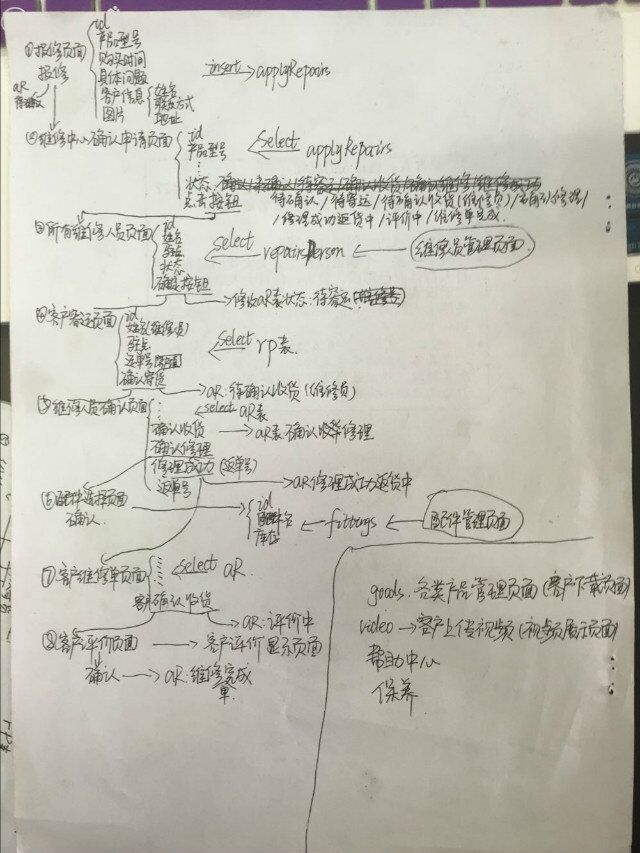 ①报修页面
id
产品型号
购买时间
具体问题
客户信息 姓名
联系方式
地址
图片
报修
aR
待确认
insert → applyRepairs
②维修中心确认申请页面
id
产品型号
⋮
select applyRepairs
状态
点击按钮 待确认/待寄运/待确认收货(维修员)/
/修理成功返货中/评价中/维修单完成.
③所有维修人员页面
id
姓名
状态
确定按钮
select repairsPerson
维修员管理页面
修改aR表状态:待寄运
④客户寄运页面
id
姓名(维修员)
运单号
确认寄货
select rp表
aR:待确认收货(维修员)
⑤维修人员确认页面
select aR表
确认收货 → aR表:确认收货修理
确认修理
修理成功(返单号)
返单号
aR修理成功返货中
⑥配件选择页面
确认
id
配件名
库存
fittings
配件管理页面
⑦客户维修单页面
select aR
客户确认收货
aR:评价中
⑧客户评价页面 → 客户评价显示页面
确认 → aR:维修完成
单
goods.各类产品管理页面(客户下载页面)
video → 客户上传视频(视频展示页面)
帮助中心
保养